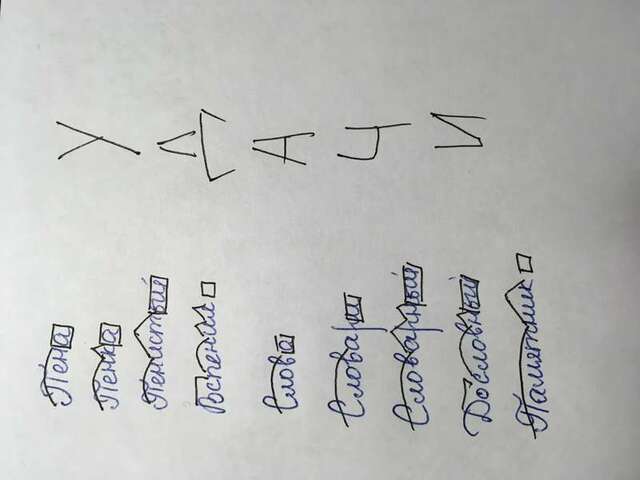 Пена
Пенка
Пенистый
Вспенил
Слова
Словари
Словарный
Дословный
Памятник
У
Д
А
Ч
И